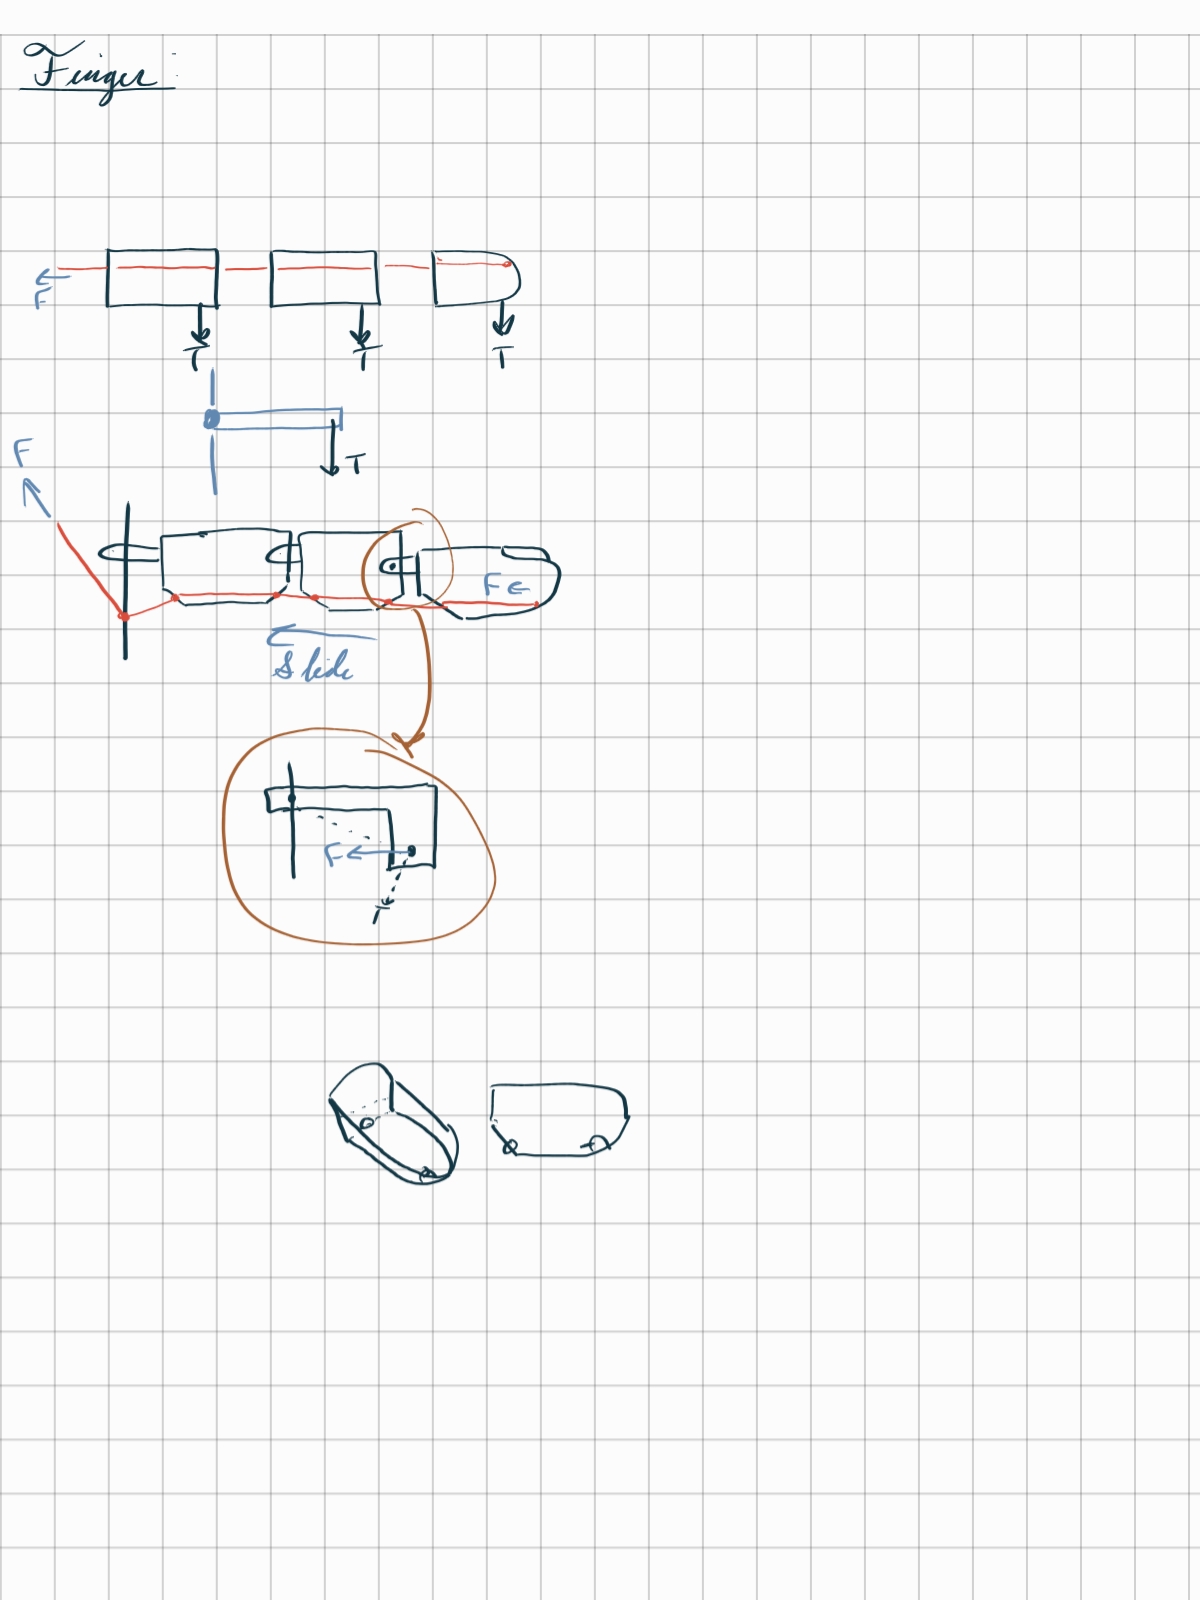 Finger :
F
T T T
T
F
F
Slide
F
T